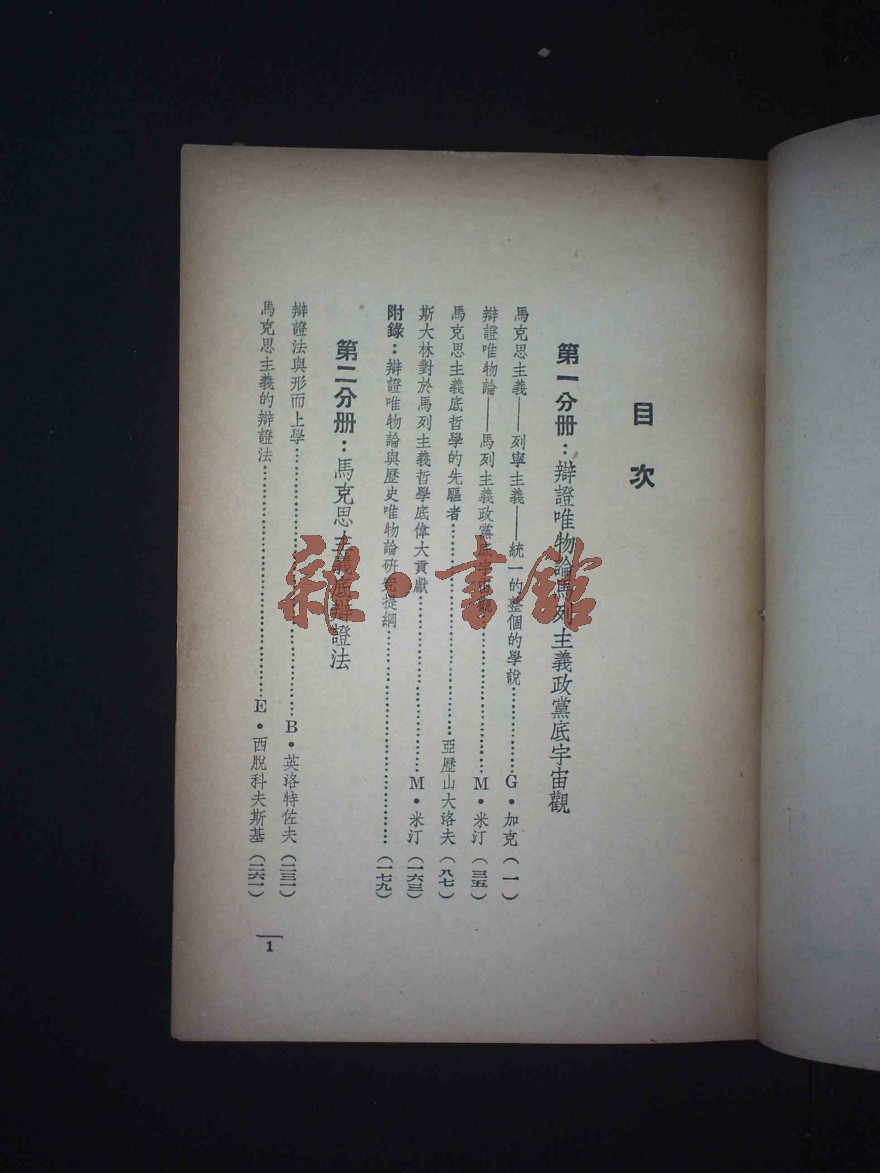 目次
第一分册：辯證唯物論馬列主義政黨底宇宙觀
馬克思主義——列寧主義——統一的整個的學說………………G·加克(一)
辯證唯物論——馬列主義政黨底宇宙觀………………M·米汀(三五)
馬克思主義底哲學的先驅者………………亞歷山大洛夫(八七)
斯大林對於馬列主義哲學底偉大貢獻………………M·米汀(一六三)
附錄：辯證唯物論與歷史唯物論研究提綱………………(一七九)
第二分册：馬克思主義底辯證法
辯證法與形而上學………………B·英洛特佐夫(二三一)
馬克思主義的辯證法………………E·西脫科夫斯基(二六一)
1
雜·書館